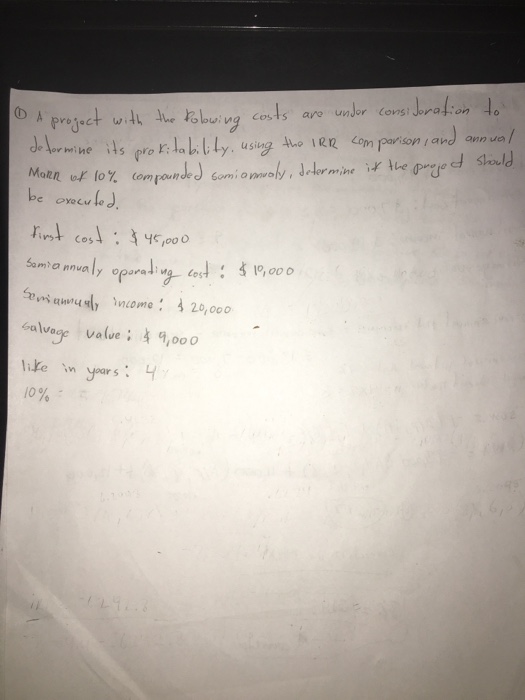 ① A project with the following costs are under consideration to
determine its profitability. using the IRR comparison, and annual
MARR of 10% compounded semiannualy, determine if the project should
be executed.
first cost : $ 45,000
Semiannualy operating cost : $ 10,000
Semiannualy income : $ 20,000
salvage value : $ 9,000
life in years : 4
10% =